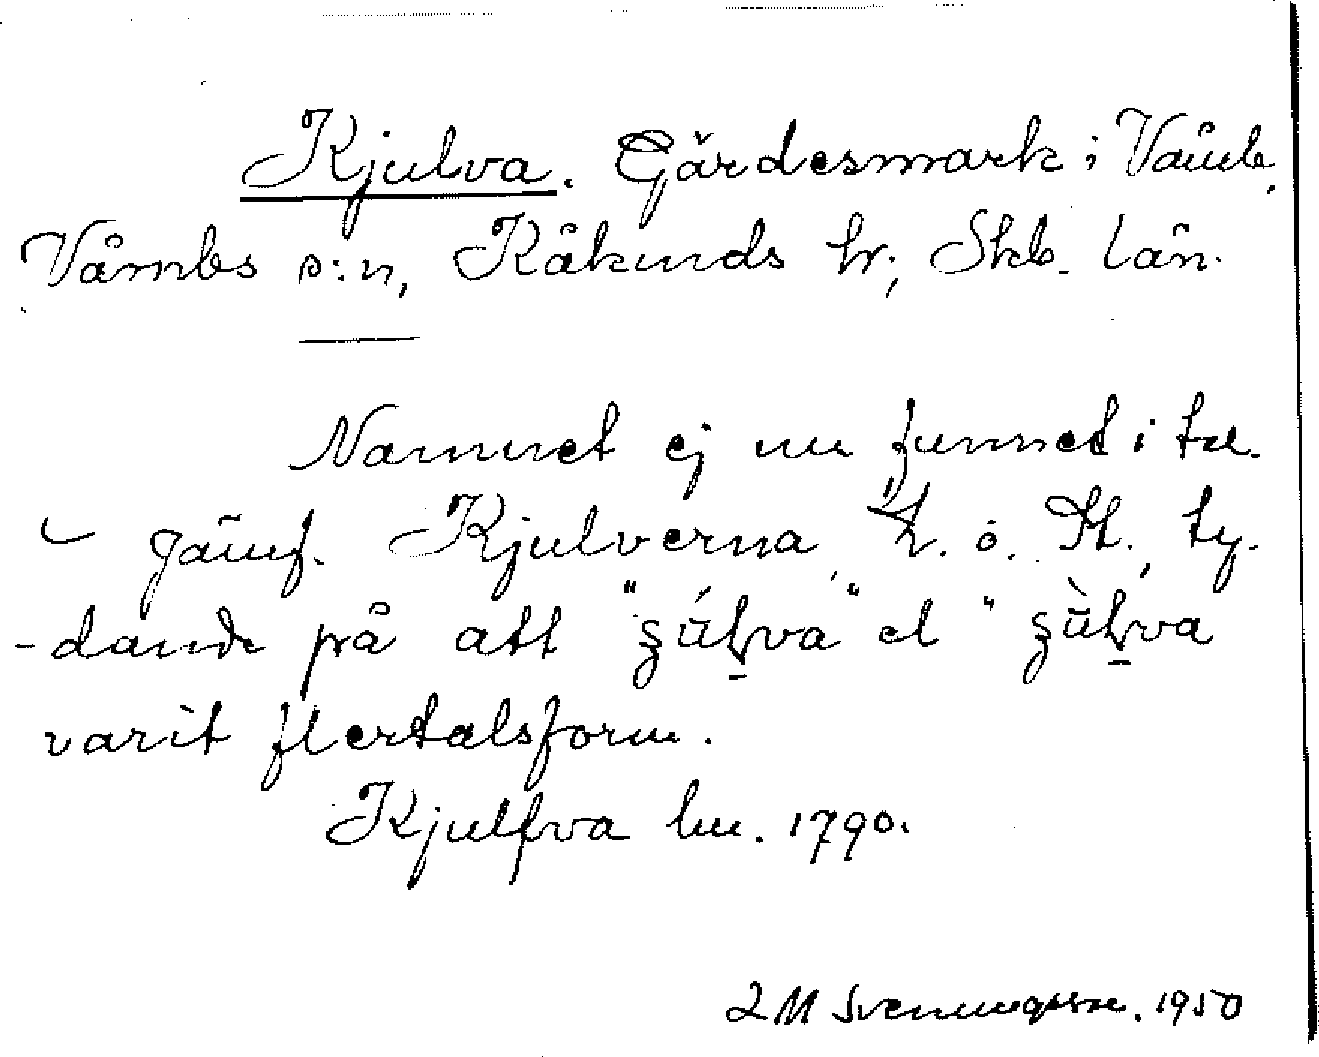 Kjulva. Gärdesmark i Våmb,
Våmbs s:n, Kåkinds hr, Skb. län.
Namnet ej nu funnet i tal.
jämf. Kjulverna, Z. o. St., ty-
-dande på att "ʒúḷva" el "ʒùḷva
varit flertalsform.
Kjulfva lm. 1790.
L M Svenungsson. 1950